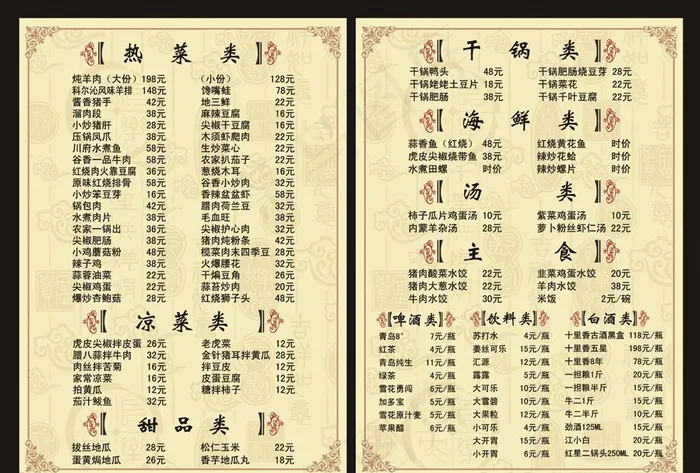 热菜类
炖羊肉（大份）198元 （小份）128元
科尔沁风味羊排 148元 馋嘴蛙 78元
酱香猪手 42元 地三鲜 22元
溜肉段 38元 麻辣豆腐 16元
小炒猪肝 28元 尖椒干豆腐 16元
压锅凤爪 38元 木须虾爬肉 22元
川府水煮鱼 58元 生炒菜心 22元
谷香一品牛肉 58元 农家扒茄子 22元
红烧肉火靠豆腐 36元 葱烧木耳 18元
原味红烧排骨 58元 谷香小炒肉 32元
小炒笨豆芽 16元 香辣盆盆虾 58元
锅包肉 42元 腊肉荷兰豆 32元
水煮肉片 38元 毛血旺 38元
农家一锅出 36元 尖椒护心肉 32元
尖椒肥肠 38元 猪肉炖粉条 42元
小鸡蘑菇粉 48元 榄菜肉末四季豆 28元
辣子鸡 38元 火爆腰花 32元
蒜蓉油菜 22元 干煸豆角 26元
尖椒鸡蛋 22元 蒜苔炒肉 20元
爆炒杏鲍菇 28元 红烧狮子头 48元
凉菜类
虎皮尖椒拌皮蛋 26元 老虎菜 12元
腊八蒜拌牛肉 32元 金针猪耳拌黄瓜 28元
肉丝拌苦菊 16元 拌豆皮 12元
家常凉菜 16元 皮蛋豆腐 12元
拍黄瓜 12元 糖拌柿子 12元
茄汁鲮鱼 32元
甜品类
拔丝地瓜 28元 松仁玉米 22元
蛋黄焗地瓜 26元 香芋地瓜丸 18元
干锅类
干锅鸭头 48元 干锅肥肠烧豆芽 28元
干锅姥姥土豆片 18元 干锅菜花 22元
干锅肥肠 38元 干锅千叶豆腐 22元
海鲜类
蒜香鱼（红烧） 48元 红烧黄花鱼 时价
虎皮尖椒烧带鱼 38元 辣炒花蛤 时价
水煮田螺 时价 辣炒螺片 时价
汤类
柿子瓜片鸡蛋汤 10元 紫菜鸡蛋汤 10元
内蒙羊杂汤 28元 萝卜粉丝虾仁汤 22元
主食
猪肉酸菜水饺 22元 韭菜鸡蛋水饺 20元
猪肉大葱水饺 22元 羊肉水饺 38元
牛肉水饺 30元 米饭 2元/碗
啤酒类
青岛8° 7元/瓶
红茶 4元/瓶
青岛纯生 11元/瓶
绿茶 4元/瓶
雪花勇闯 6元/瓶
加多宝 5元/瓶
雪花原汁麦 5元/瓶
苹果醋 6元/瓶
饮料类
苏打水 4元/瓶
姜丝可乐 15元/瓶
汇源 12元/瓶
露露 5元/瓶
大可乐 10元/瓶
大雪碧 10元/瓶
大果粒 12元/瓶
小可乐 4元/瓶
大开胃 15元/瓶
小开胃 6元/瓶
白酒类
十里香古酒黑盒 118元/瓶
十里香五星 198元/瓶
十里香8年 78元/瓶
一担粮1斤 20元/瓶
一担粮半斤 15元/瓶
牛二1斤 15元/瓶
牛二半斤 10元/瓶
劲酒125ML 15元/瓶
江小白 20元/瓶
红星二锅头250ML 20元/瓶